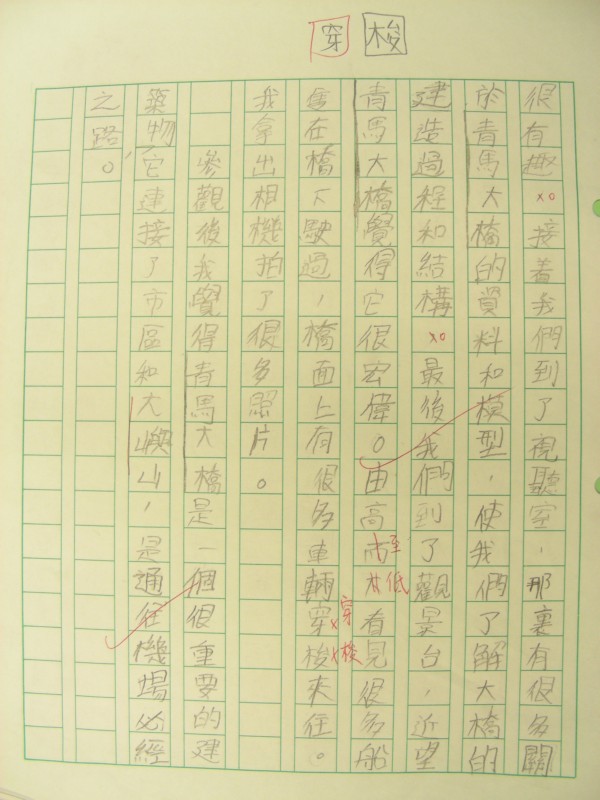 穿梭
很有趣。接着我們到了視聽室，那裏有很多關
於青馬大橋的資料和模型，使我們了解大橋的
建造過程和結構。最後我們到了觀景台，近望
青馬大橋覺得它很宏偉。由高至低看見很多船
隻在橋下駛過，橋面上有很多車輛穿梭來往。
穿
梭
我拿出相機拍了很多照片。
參觀後我覺得青馬大橋是一個很重要的建
築物，它連接了市區和大嶼山，是通往機場必經
之路。